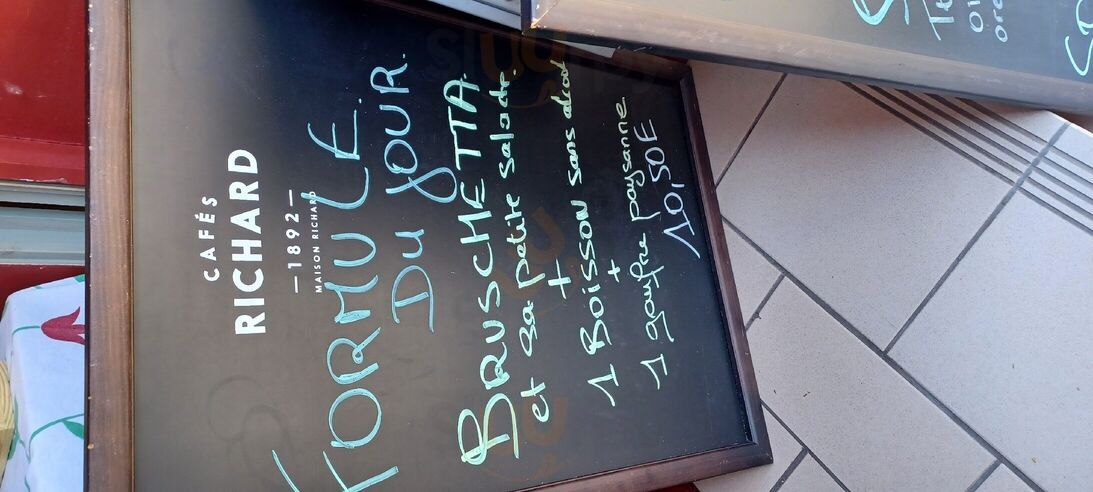 CAFÉS
RICHARD
1892
MAISON RICHARD
FORMULE
DU JOUR.
BRUSCHETTA.
et sa petite salade.
+
1 BOISSON sans alcool
+
1 gaufre paysanne
10,50E